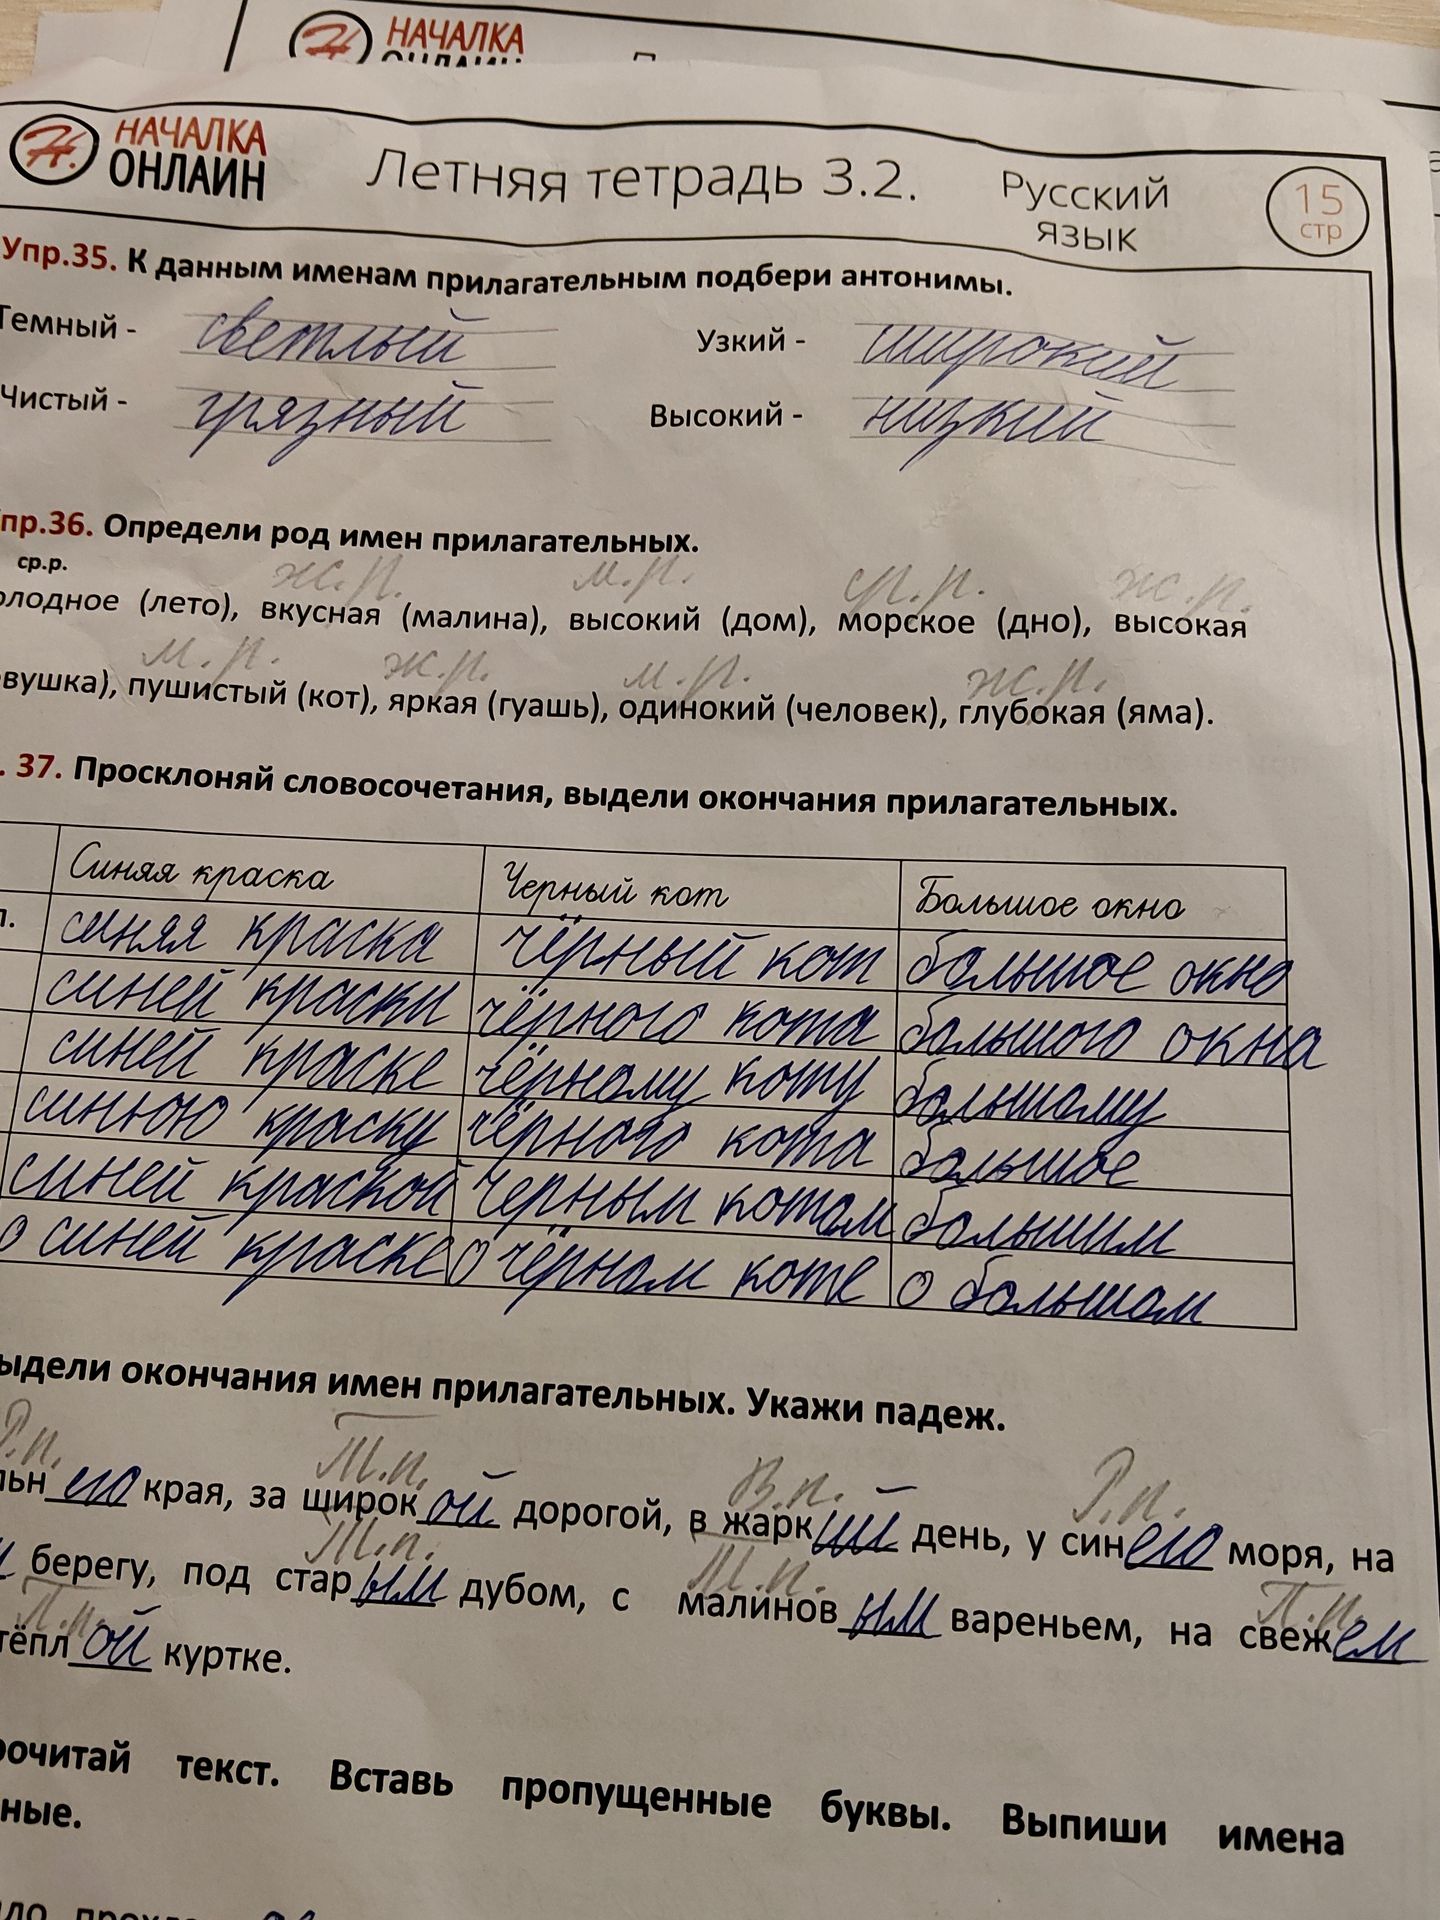 НАЧАЛКА
НАЧАЛКА
ОНЛАЙН
Летняя тетрадь 3.2.
Русский
язык
15
стр
Упр.35. К данным именам прилагательным подбери антонимы.
Темный - светлый Узкий - широкий
Чистый - грязный Высокий - низкий
пр.36. Определи род имен прилагательных.
ср.р. ж.р. м.р. ср.р. ж.р.
олодное (лето), вкусная (малина), высокий (дом), морское (дно), высокая
м.р. ж.р. м.р. ж.р.
вушка), пушистый (кот), яркая (гуашь), одинокий (человек), глубокая (яма).
. 37. Просклоняй словосочетания, выдели окончания прилагательных.
Синяя краска Черный кот Большое окно
п. синяя краска чёрный кот большое окно
синей краски чёрного кота большого окна
синей краске чёрному коту большому
синюю краску чёрного кота большое
синей краской черным котом большим
о синей краске о чёрном коте о большом
ыдели окончания имен прилагательных. Укажи падеж.
Р.п. Т.п. В.п. Р.п.
льнего края, за широкой дорогой, в жаркий день, у синего моря, на
Т.п. Т.п. П.п.
берегу, под старым дубом, с малиновым вареньем, на свежем
П.п.
тёплой куртке.
рочитай текст. Вставь пропущенные буквы. Выпиши имена
ные.